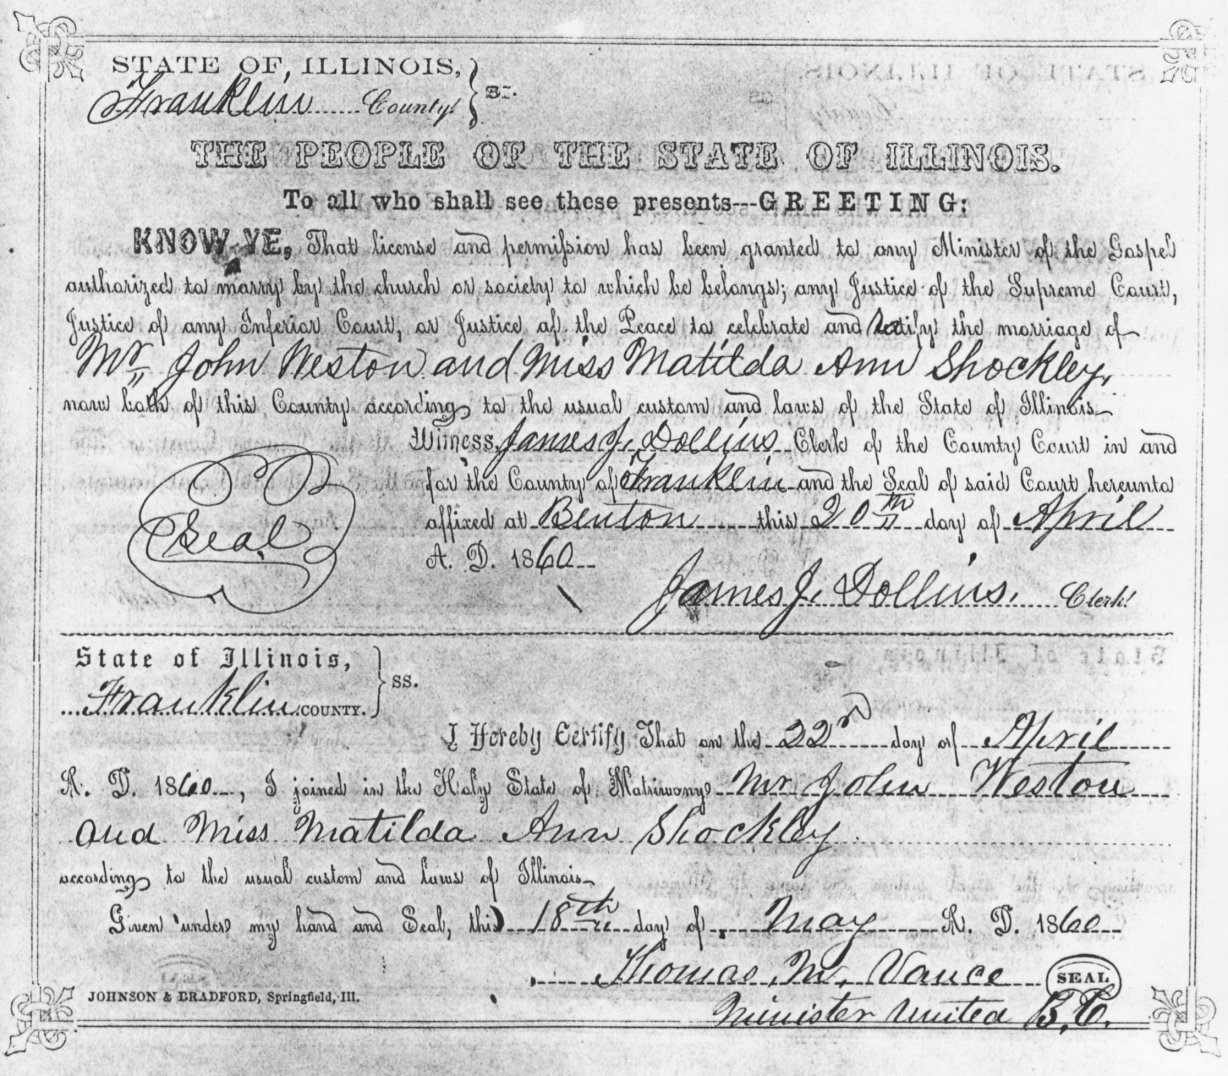 STATE OF ILLINOIS,
Franklin County. } ss.
THE PEOPLE OF THE STATE OF ILLINOIS.
To all who shall see these presents---GREETING:
KNOW YE, That license and permission has been granted to any Minister of the Gospel
authorized to marry by the church or society to which he belongs; any Justice of the Supreme Court,
Justice of any Inferior Court, or Justice of the Peace to celebrate and ratify the marriage of
Mr. John Weston and Miss Matilda Ann Shockley,
now both of this County according to the usual custom and laws of the State of Illinois.
Witness, James J. Dollins Clerk of the County Court in and
for the County of Franklin and the Seal of said Court hereunto
Seal
affixed at Benton this 20th day of April
A. D. 1860
James J. Dollins. Clerk.
State of Illinois,
Franklin COUNTY. } SS.
I Hereby Certify That on the 22nd day of April
A. D. 1860, I joined in the Holy State of Matrimony Mr John Weston
and Miss Matilda Ann Shockley
according to the usual custom and laws of Illinois.
Given under my hand and Seal, this 18th day of May A. D. 1860
Thomas M. Vance SEAL
JOHNSON & BRADFORD, Springfield, Ill.
Minister United B. C.